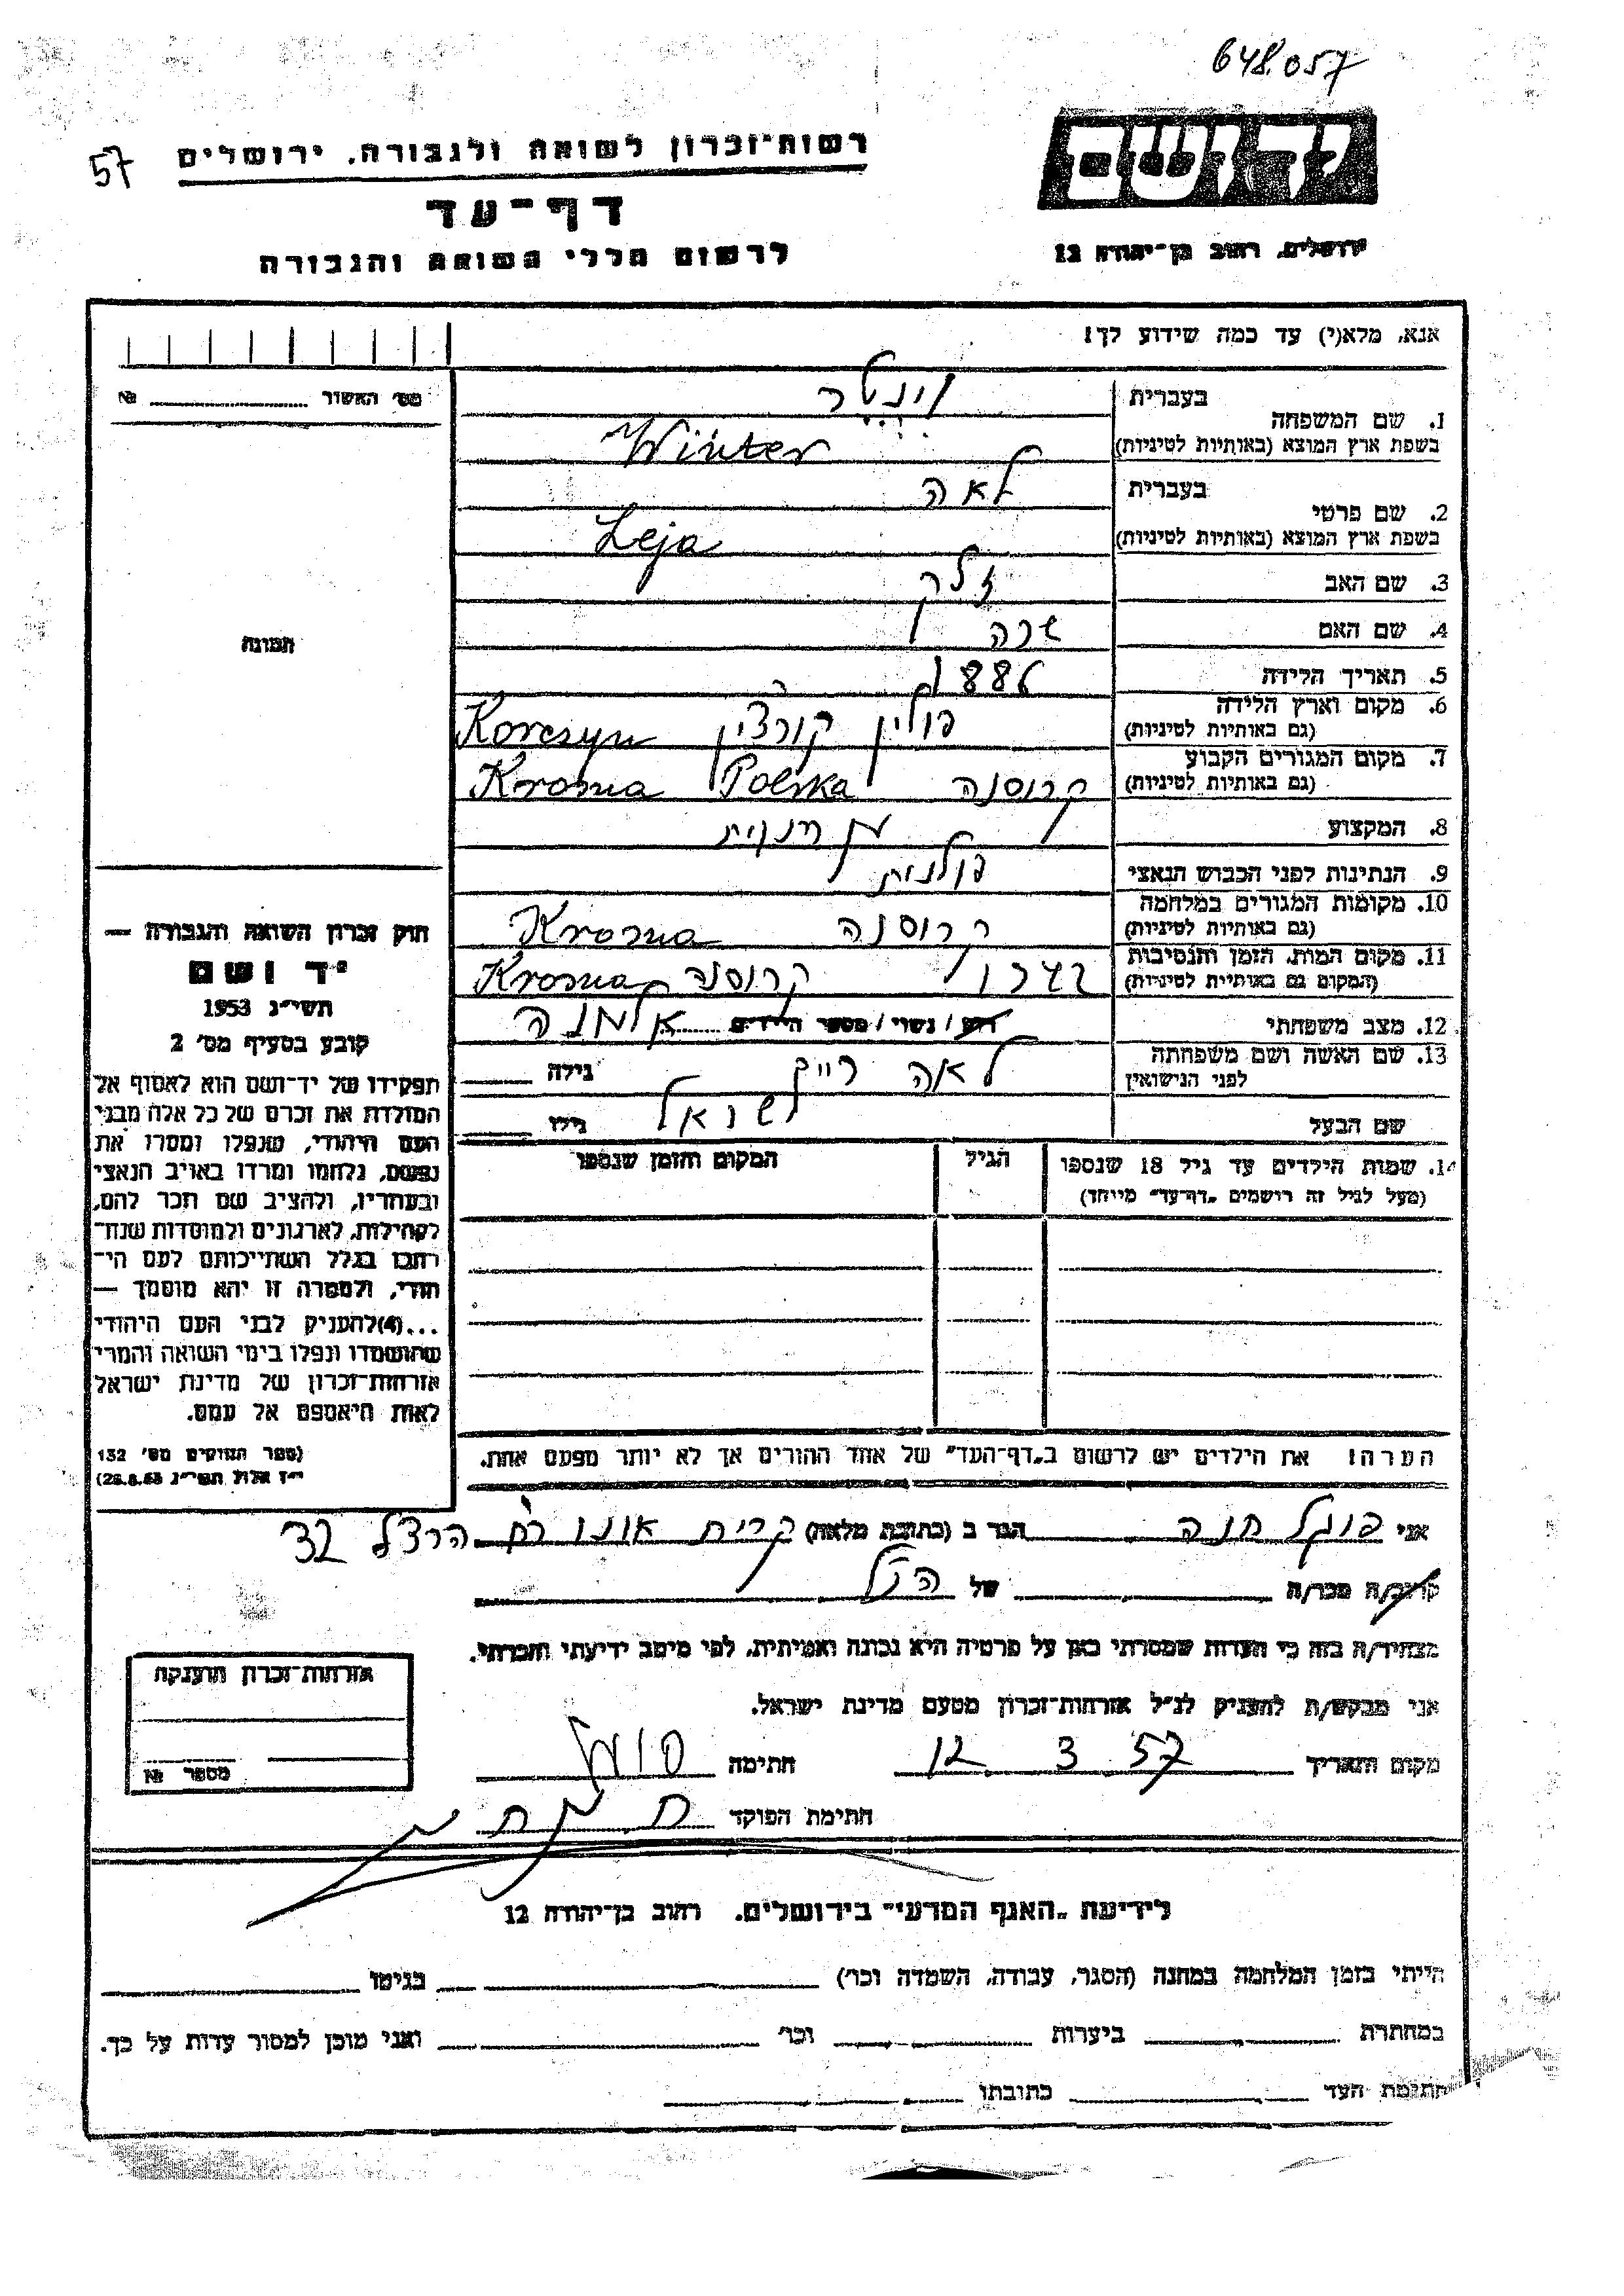 648.057
57
רשות־זכרון לשואה ולגבורה, ירושלים
דף־עד
לרשום חללי השואה והגבורה
יד ושם
ירושלים, רחוב בן־יהודה 12
אנא, מלא(י) עד כמה שידוע לך!
מס׳ האשור № 
תמונה
1. שם המשפחה
בעברית וינטר
בשפת ארץ המוצא (באותיות לטיניות) Winter
2. שם פרטי
בעברית לאה
בשפת ארץ המוצא (באותיות לטיניות) Leja
3. שם האב זלק
4. שם האם שרה
5. תאריך הלידה 1886
6. מקום וארץ הלידה
(גם באותיות לטיניות) פולין קורצין Korczyn
7. מקום המגורים הקבוע
(גם באותיות לטיניות) קרוסנה Krosna Polska
8. המקצוע
9. הנתינות לפני הכבוש הנאצי פולנית
10. מקומות המגורים במלחמה
(גם באותיות לטיניות) קרוסנה Krosna
11. מקום המות, הזמן והנסיבות
(המקום גם באותיות לטיניות) קרוסנה Krosna
12. מצב משפחתי רווק/נשוי/מספר הילדים אלמנה
13. שם האשה ושם משפחתה
לפני הנישואין לאה גילה
שם הבעל ישראל גילו
14. שמות הילדים עד גיל 18 שנספו הגיל המקום והזמן שנספו
(מעל לגיל זה רושמים „דף־עד״ מיוחד)
הערה! את הילדים יש לרשום ב„דף־העד״ של אחד ההורים אך לא יותר מפעם אחת.
חוק זכרון השואה והגבורה —
יד ושם
תשי״ג 1953
קובע בסעיף מס׳ 2
תפקידו של יד־ושם הוא לאסוף אל
המולדת את זכרם של כל אלה מבני
העם היהודי, שנפלו ומסרו את
נפשם, נלחמו ומרדו באויב הנאצי
ובעוזריו, ולהציב שם וזכר להם,
לקהילות, לארגונים ולמוסדות שנח־
רבו בגלל השתייכותם לעם הי־
הודי, ולמטרה זו יהא מוסמך —
...(4)להעניק לבני העם היהודי
שהושמדו ונפלו בימי השואה והמרי
אזרחות־זכרון של מדינת ישראל
לאות היאספם אל עמם.
(ספר החוקים מס׳ 132
י״ז אלול תשי״ג 28.8.53)
אני פוגל חנה הגר ב (כתובת מלאה) קרית אונו רח הרצל 32
קרוב/ה מכר/ה של הנ״ל
מצהיר/ה בזה כי העדות שמסרתי כאן על פרטיה היא נכונה ואמיתית, לפי מיטב ידיעתי והכרתי.
אני מבקש/ת להעניק לנ״ל אזרחות־זכרון מטעם מדינת ישראל.
מקום ותאריך 12 3 57 חתימה
חתימת הפוקד
אזרחות־זכרון הוענקה
מספר №
לידיעת „האגף המדעי״ בירושלים, רחוב בן־יהודה 12
הייתי בזמן המלחמה במחנה (הסגר, עבודה, השמדה וכו׳) בגיטו
במחתרת ביערות וכו׳ ואני מוכן למסור עדות על כך.
חתימת העד כתובתו